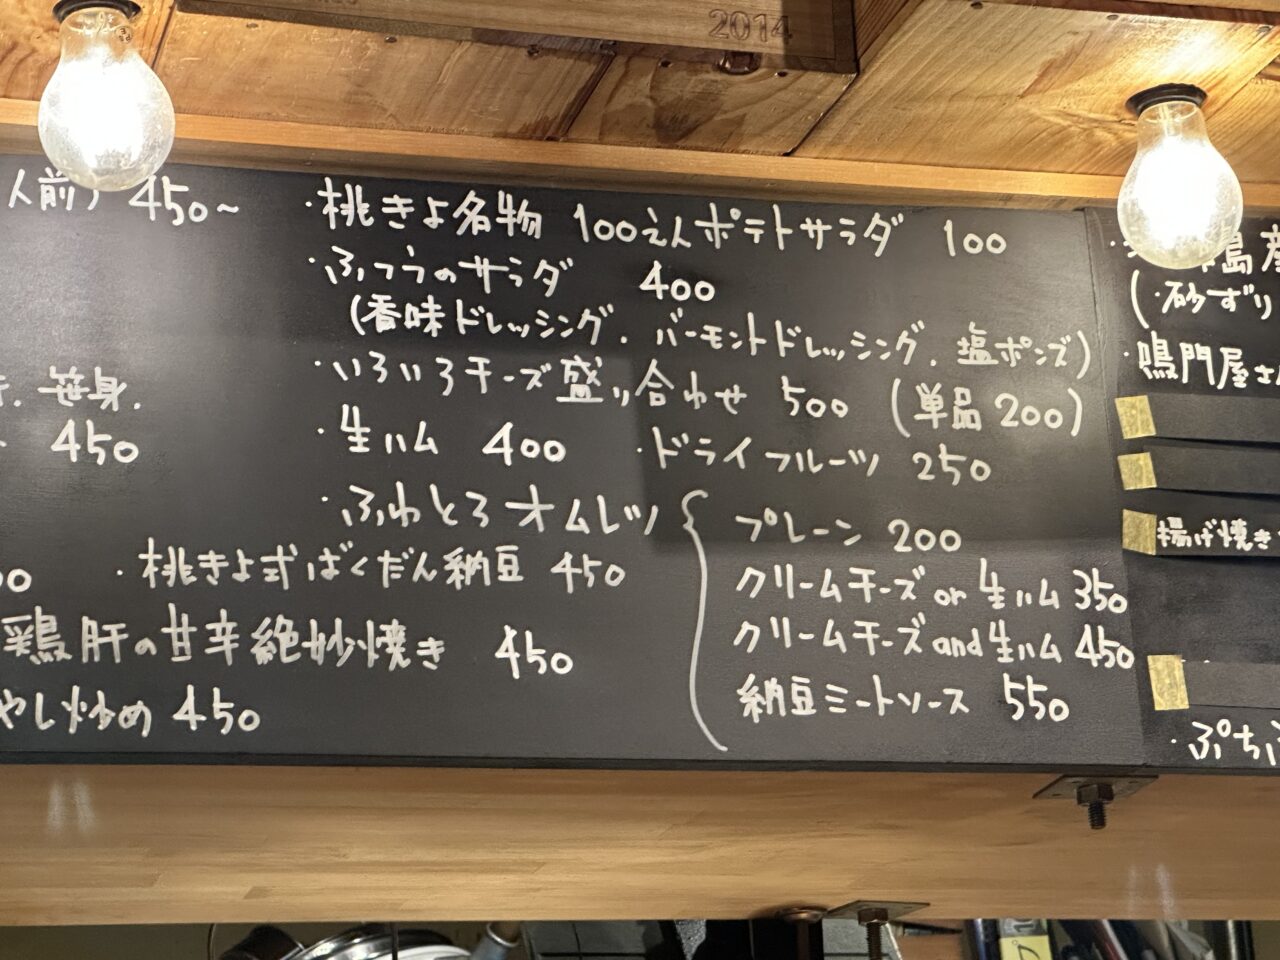 2014
人前) 450~
・桃きよ名物 100えんポテトサラダ 100
・ふつうのサラダ 400
(香味ドレッシング. バーモントドレッシング. 塩ポンズ)
・いろいろチーズ盛り合わせ 500 (単品 200)
笹身.
450
・生ハム 400 ・ドライフルーツ 250
・ふわとろオムレツ
プレーン 200
クリームチーズ or 生ハム 350
クリームチーズ and 生ハム 450
納豆ミートソース 550
・桃きよ式ばくだん納豆 450
鶏肝の甘辛絶妙焼き 450
やし炒め 450
島産
(・砂ずり
・鳴門屋さん
揚げ焼き
・ぷちぷ